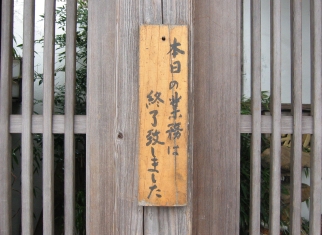 本日の業務は
終了致しました